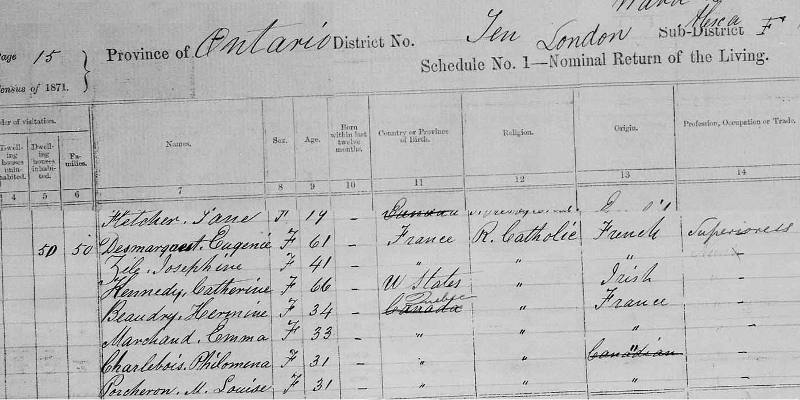 Ward
Page 15 Province of Ontario District No. Ten London Sub-District F
Census of 1871. } Schedule No. 1—Nominal Return of the Living.
Order of visitation.
Dwelling houses uninhabited. Dwelling houses inhabited. Families. Names. Sex. Age. Born within last twelve months. Country or Province of Birth. Religion. Origin. Profession, Occupation or Trade.
4 5 6 7 8 9 10 11 12 13 14
Fletcher. Jane 19 –
50 50 Desmarquest. Eugenie F 61 – France R. Catholic French Superioress
Zile. Josephine F 41 – " " " –
Kennedy. Catherine F 66 – U States " Irish –
Beaudry. Hermine F 34 – Canada Quebec " France –
Marchand. Emma F 33 – " " " –
Charlebois. Philomena F 31 – " " Canadian –
Porcheron. M. Louise F 31 – " " " –